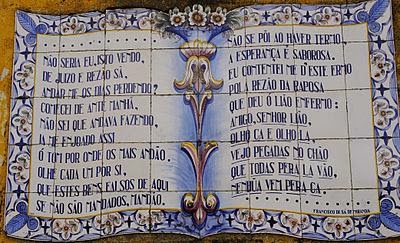 NÃO SERIA EU, ISTO VENDO,
DE JUIZO E REZÃO SÃ,
ANDAR-ME OS DIAS PERDENDO?
COMECEI DE ANTE MANHÃ,
NÃO SEI QUE ANDAVA FAZENDO,
À ME ENJOADO ASSI
Ó TOM POR ONDE OS MAIS ANDÃO.
OLHE CADA UM POR SI,
QUE ESTES BENS FALSOS DE AQUI
SE NÃO SÃO MANDADOS, MANDÃO.
NÃO SE PÔI AO HAVER TERMO,
A ESPERANÇA É SABOROSA.
EU CONTENTEI ME D'ESTE ERMO
POLA REZÃO DA RAPOSA
QUE DEU Ó LIÃO ENFERMO:
AMIGO, SENHOR LIÃO,
OLHO CÁ E OLHO LÁ
VEJO PEGADAS NO CHÃO
QUE TODAS PERA LÁ VÃO,
NENHŨA VEM PERA CÁ.
FRANCISCO DE SÁ DE MIRANDA